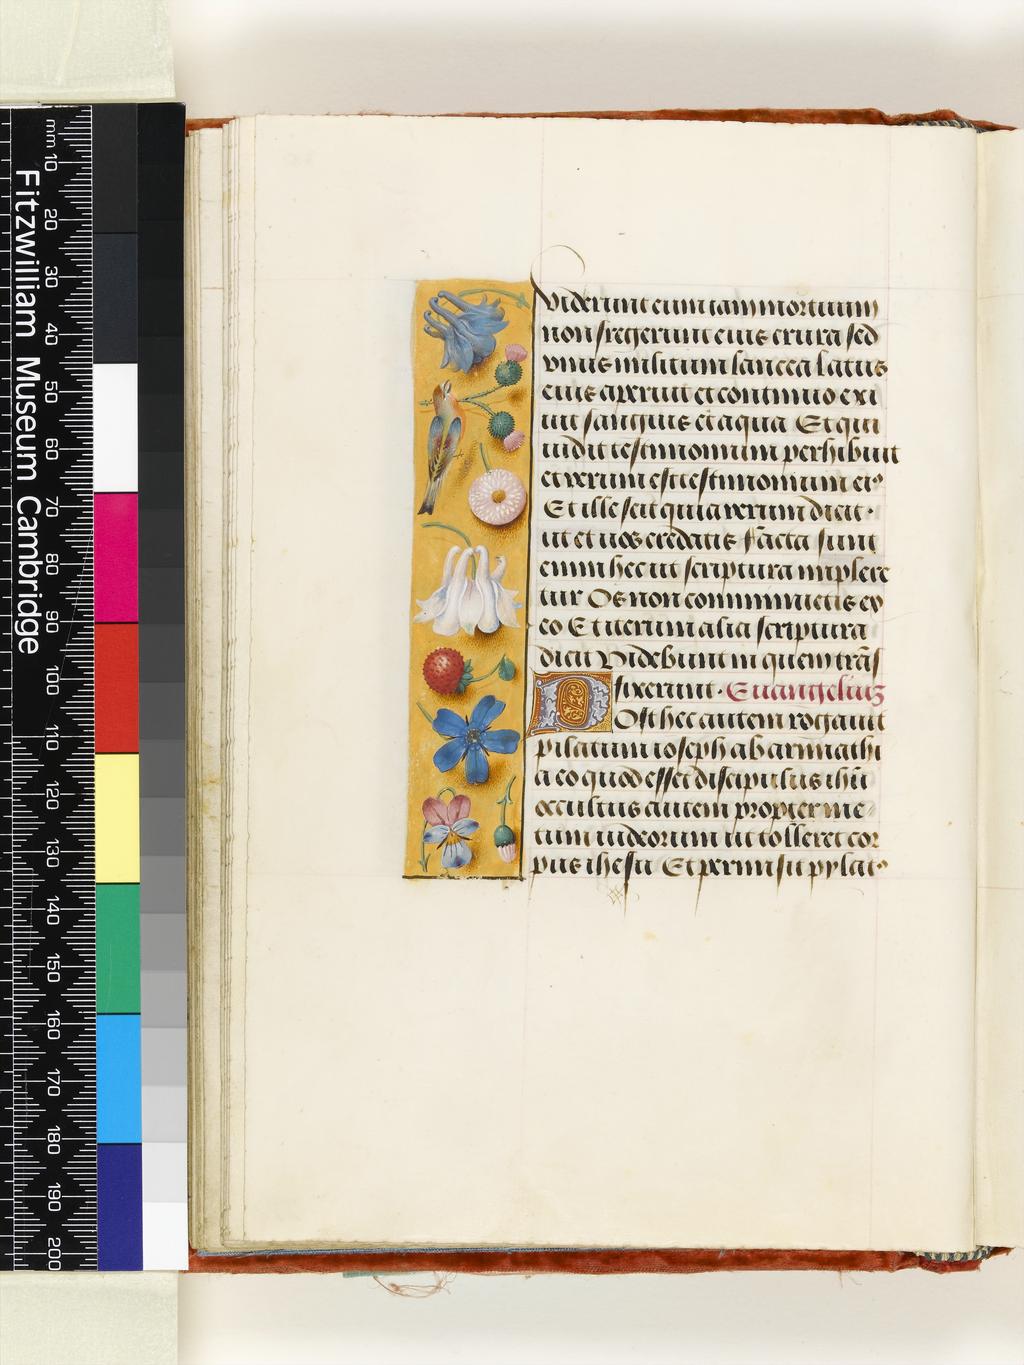 viderunt eum iam mortuum
non fregerunt eius crura sed
vnus militum lancea latus
eius aperuit et continuo exi
uit sanguis et aqua Et qui
uidit testimonium perhibuit
et verum est testimonium eiꝰ
Et ille scit quia verum dicit·
ut et uos credatis Facta sunt
enim hec ut scriptura implere
tur Os non comminuetis ex
eo Et iterum alia scriptura
dicit Videbunt in quem trãs
fixerunt· Euangelium
POst hec autem rogauit
pilatum ioseph ab arimathi
a eo quod esset discipulus ihũ
occultus autem propter me
tum iudeorum ut tolleret cor
pus ihesu Et permisit pylatꝰ
mm 10 20 30 40 50 60 70 80 90 100 110 120 130 140 150 160 170 180 190 200
Fitzwilliam Museum Cambridge